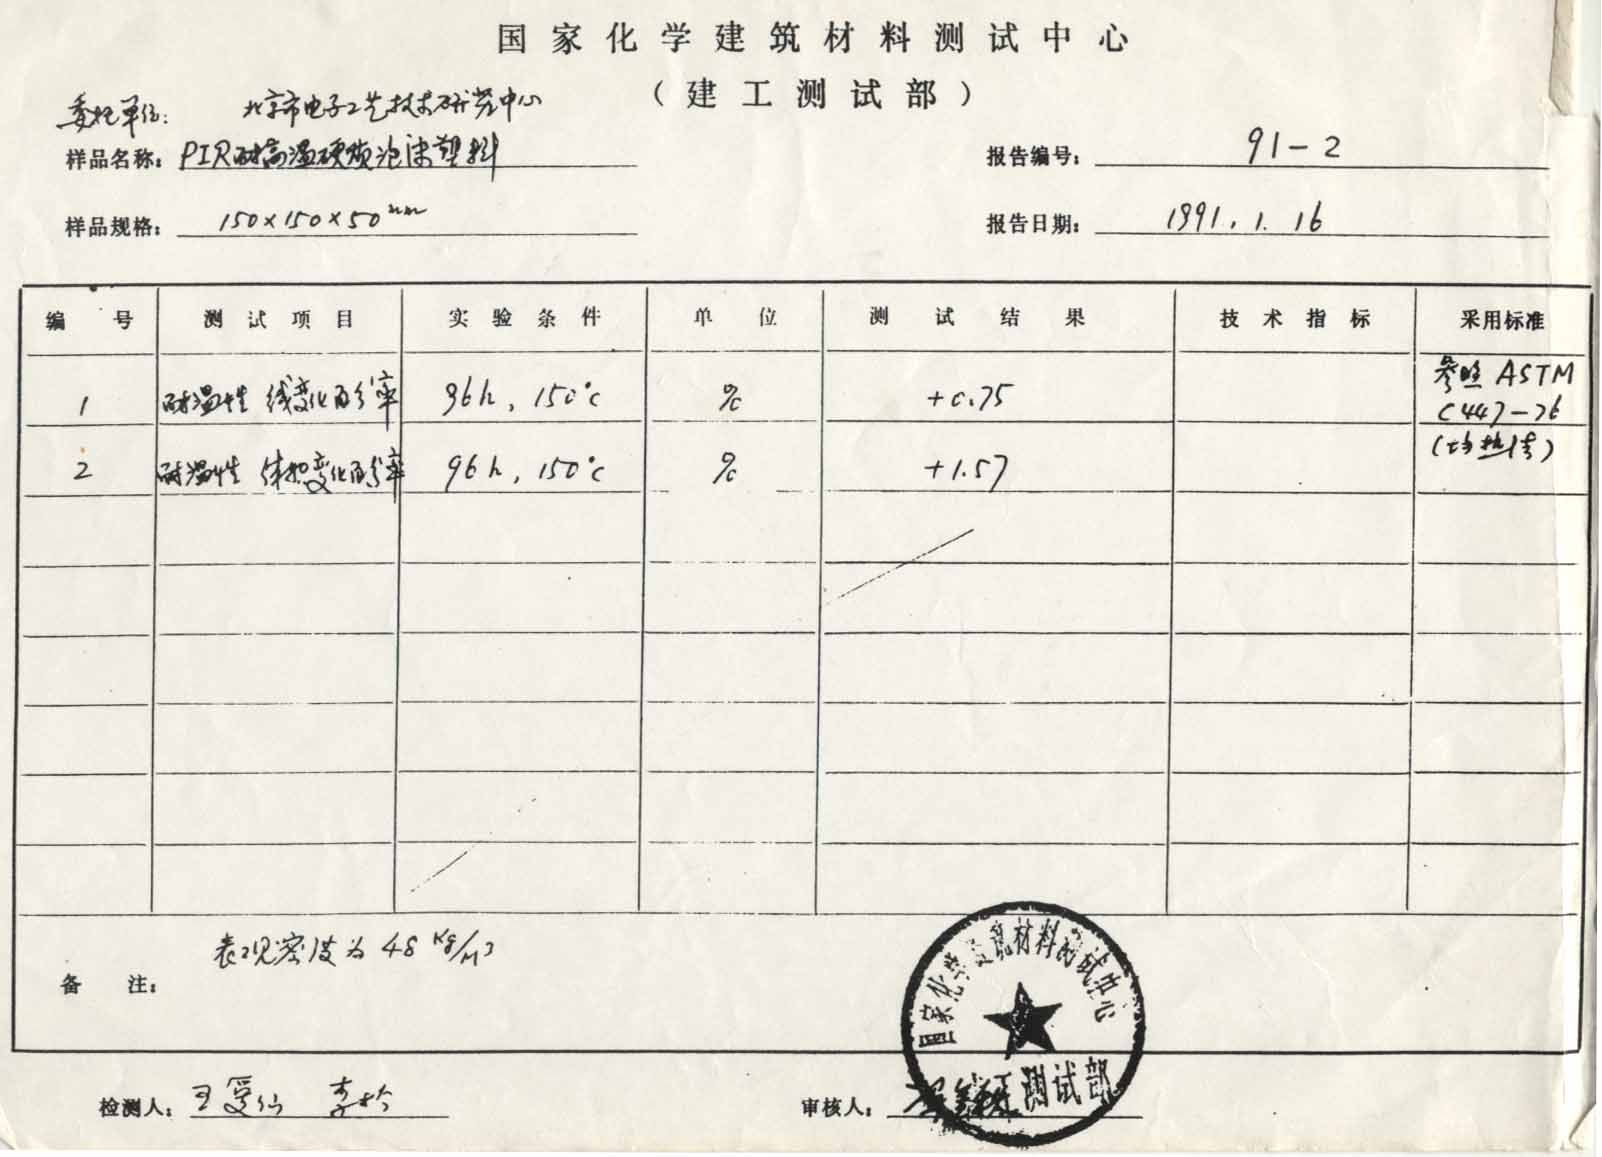 国家化学建筑材料测试中心
(建工测试部)
委托单位: 北京市电子工艺技术研究中心
样品名称: PIR耐高温硬质泡沫塑料 报告编号: 91-2
样品规格: 150×150×50mm 报告日期: 1991.1.16
编号 测试项目 实验条件 单位 测试结果 技术指标 采用标准
1 耐温性 线变化百分率 96h,150°C % +0.75 参照 ASTM C447-76
2 耐温性 体积变化百分率 96h,150°C % +1.57
备注: 表观密度为48 Kg/M³
检测人: 王 李
审核人:
国家化学建筑材料测试中心
建工测试部